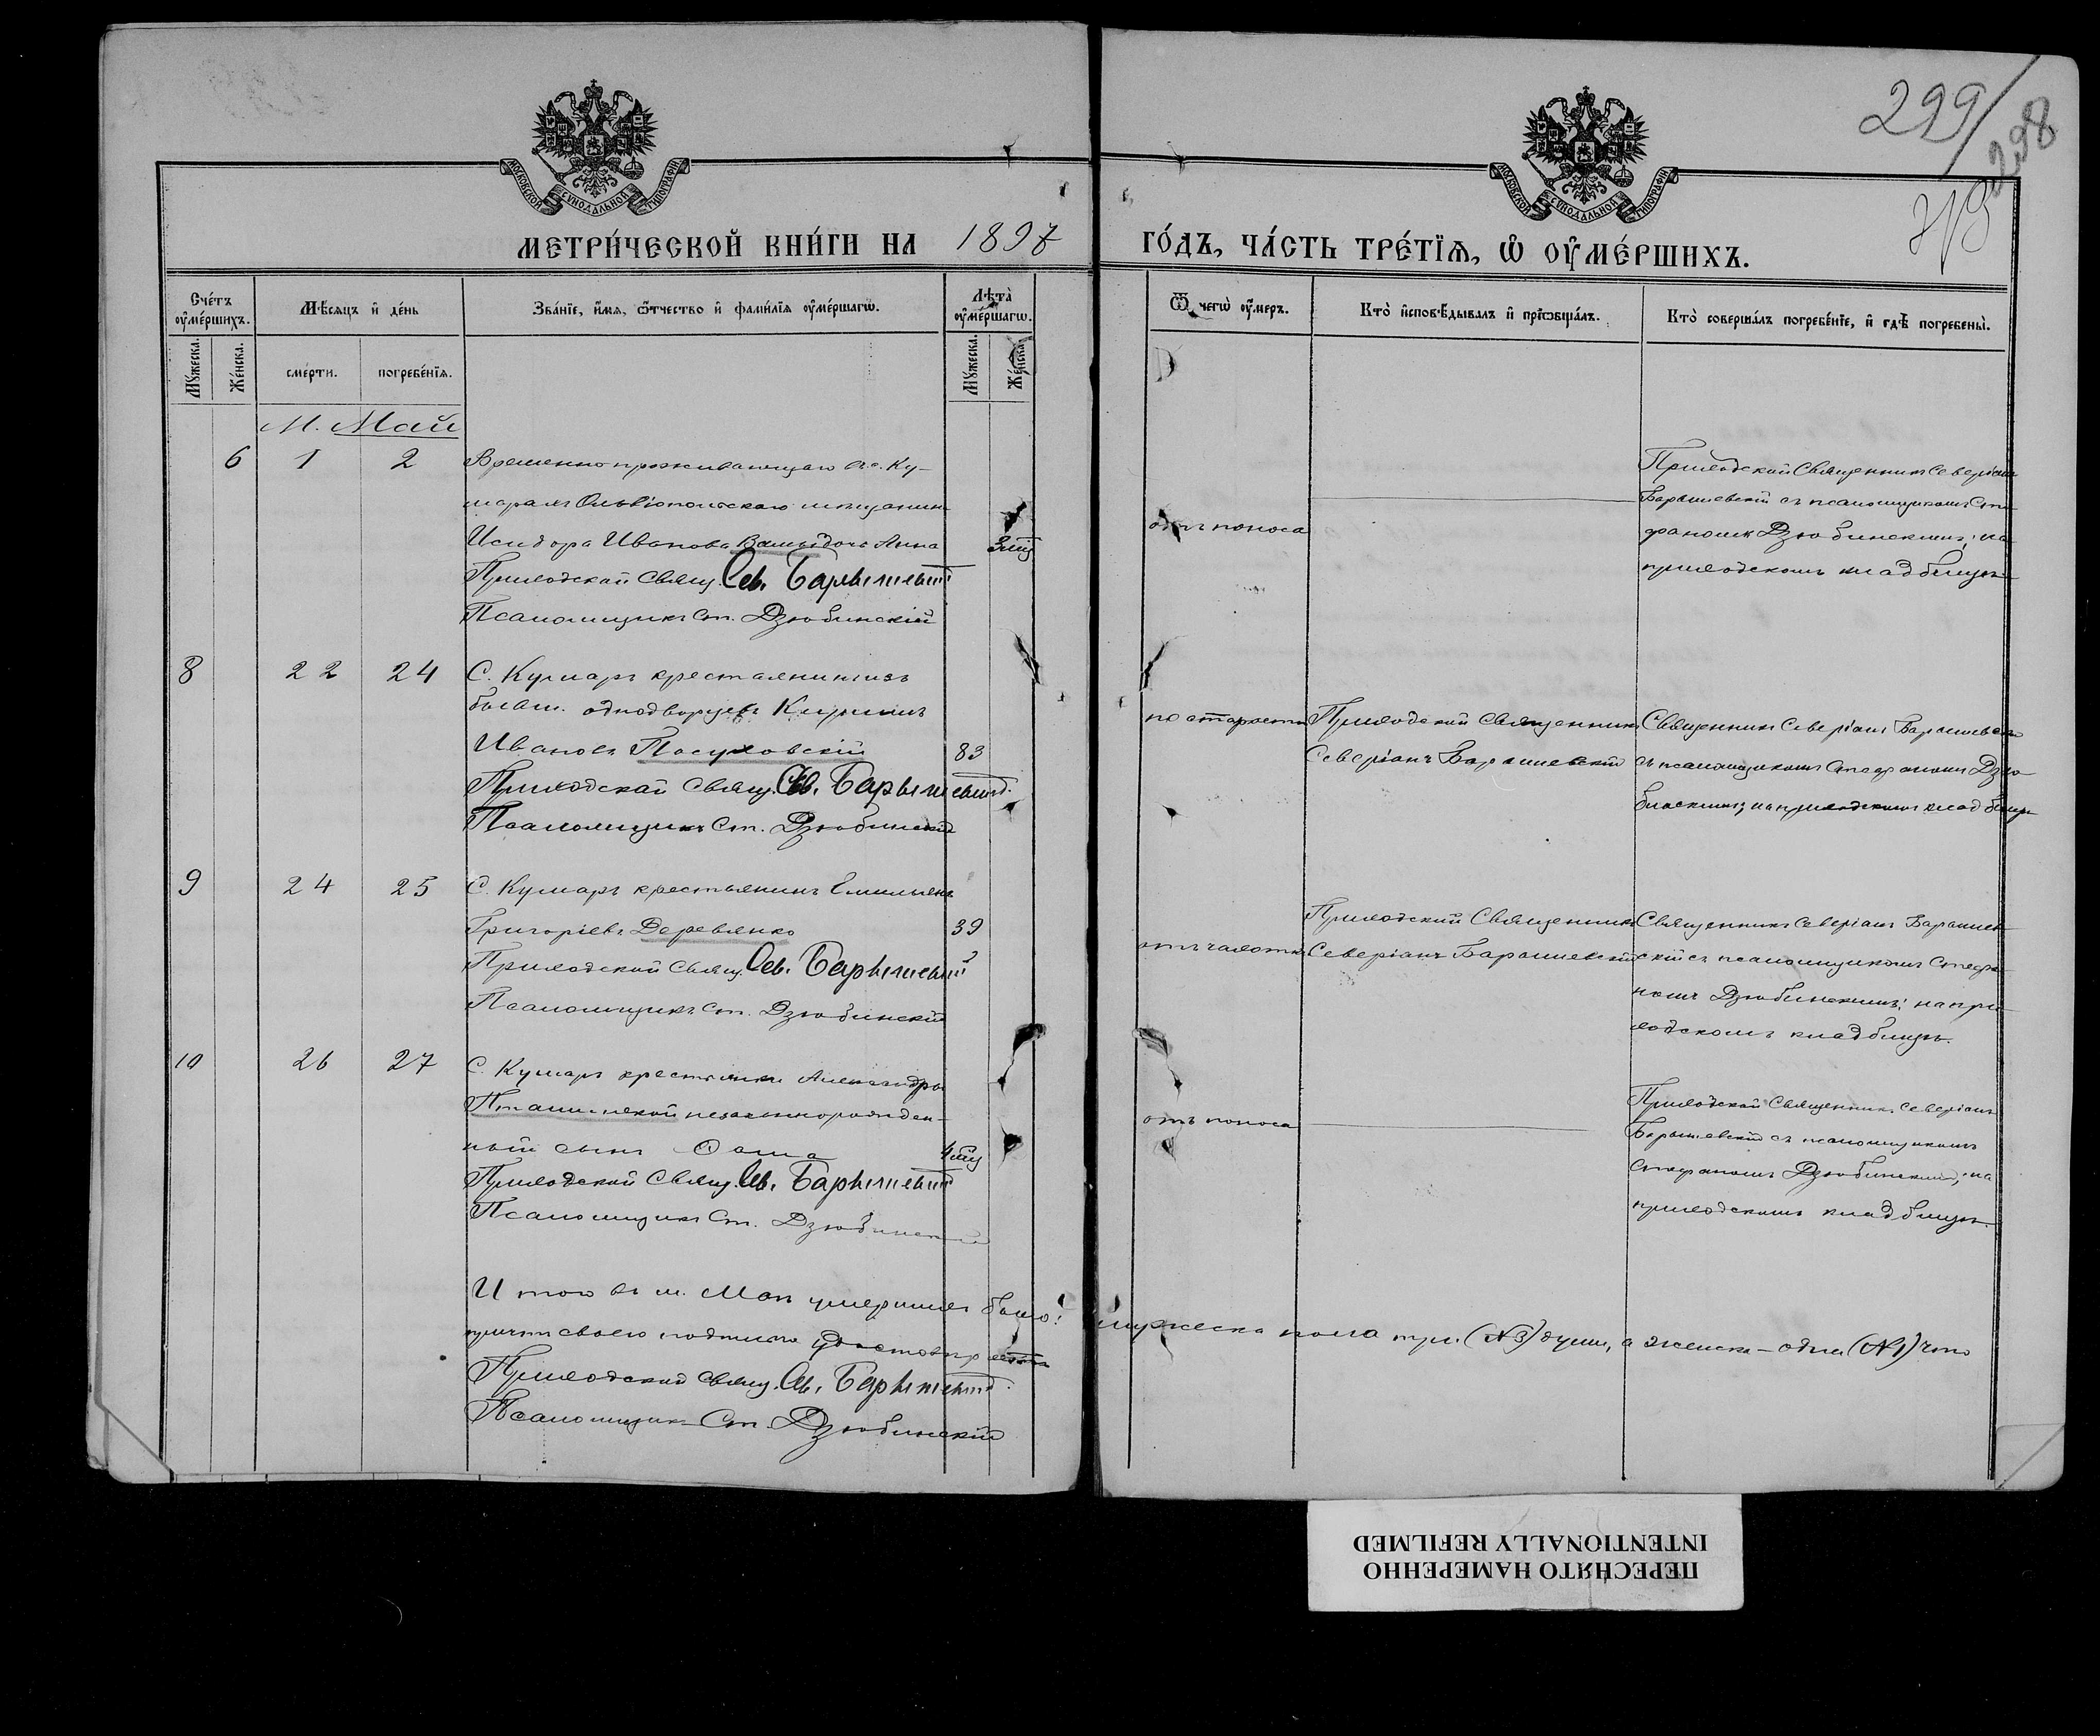 299/298
МОСКОВСКОЙ СѴНОДАЛЬНОЙ ТИПОГРАФІИ
МОСКОВСКОЙ СѴНОДАЛЬНОЙ ТИПОГРАФІИ
МЕТРИ́ЧЕСКОЙ КНИ́ГИ НА 1897 ГО́ДЪ, ЧА́СТЬ ТРЕ́ТЇѦ, Ѽ ОУ҆МЕ́РШИХЪ.
Сче́тъ оу҆ме́ршихъ.
Мѣ́сѧцъ и҆ де́нь
Зва́нїе, и҆́мѧ, ѻ҆́тчество и҆ фами́лїѧ оу҆ме́ршагѡ.
Лѣ́та оу҆ме́ршагѡ.
Ѿ чегѡ̀ оу҆́меръ.
Кто̀ и҆сповѣ́дывалъ и҆ прїѡбща́лъ.
Кто̀ соверша́лъ погребе́нїе, и҆ гдѣ̀ погребены̀.
Мꙋ́жеска.
Же́нска.
сме́рти.
погребе́нїѧ.
Мꙋ́жеска.
Же́нска.
М. Май
6 1 2 Временно проживающаго въ с. Ку-
марахъ Ольвіопольскаго мещанин
Исидора Иванова дочь Анна
Приходской Свящ. Сев. Барышевскій
Псаломщикъ Ст. Дзюбинскій
отъ поноса
Приходской Священникъ Северіанъ
Барышевскій съ псаломщикомъ Сте-
фаномъ Дзюбинскимъ; на
приходскомъ кладбищѣ
8 22 24 С. Кумаръ крестьянинъ изъ
бывш. однодворцевъ
Ивановъ Пасуховскій 83
Приходской Свящ. Сев. Барышевскій
Псаломщикъ Ст. Дзюбинскій
по старости
Приходской Священникъ
Северіанъ Барышевскій
Священникъ Северіанъ Барышевскій
съ псаломщикомъ Стефаномъ Дзю-
бинскимъ; на приходскомъ кладбищѣ
9 24 25 С. Кумаръ крестьянинъ Емильянъ
Григоріевъ Деревянко 39
Приходской Свящ. Сев. Барышевскій
Псаломщикъ Ст. Дзюбинскій
отъ чахотки
Приходской Священникъ
Северіанъ Барышевскій
Священникъ Северіанъ Барышев-
скій съ псаломщикомъ Стефа-
номъ Дзюбинскимъ; на при-
ходскомъ кладбищѣ.
10 26 27 С. Кумаръ крестьянки Александры
незаконнорожден-
ный сынъ Ѳома
Приходской Свящ. Сев. Барышевскій
Псаломщикъ Ст. Дзюбинскій
отъ поноса
Приходской Священникъ Северіанъ
Барышевскій съ псаломщикомъ
Стефаномъ Дзюбинскимъ; на
приходскомъ кладбищѣ.
Итого въ м. Маѣ умершихъ было: мужеска пола три (№ 3) души, а женска – одна (№ 1) что
причтъ своею подписью
Приходской Свящ. Сев. Барышевскій
Псаломщикъ Ст. Дзюбинскій
ПЕРЕСНЯТО НАМЕРЕННО
INTENTIONALLY REFILMED